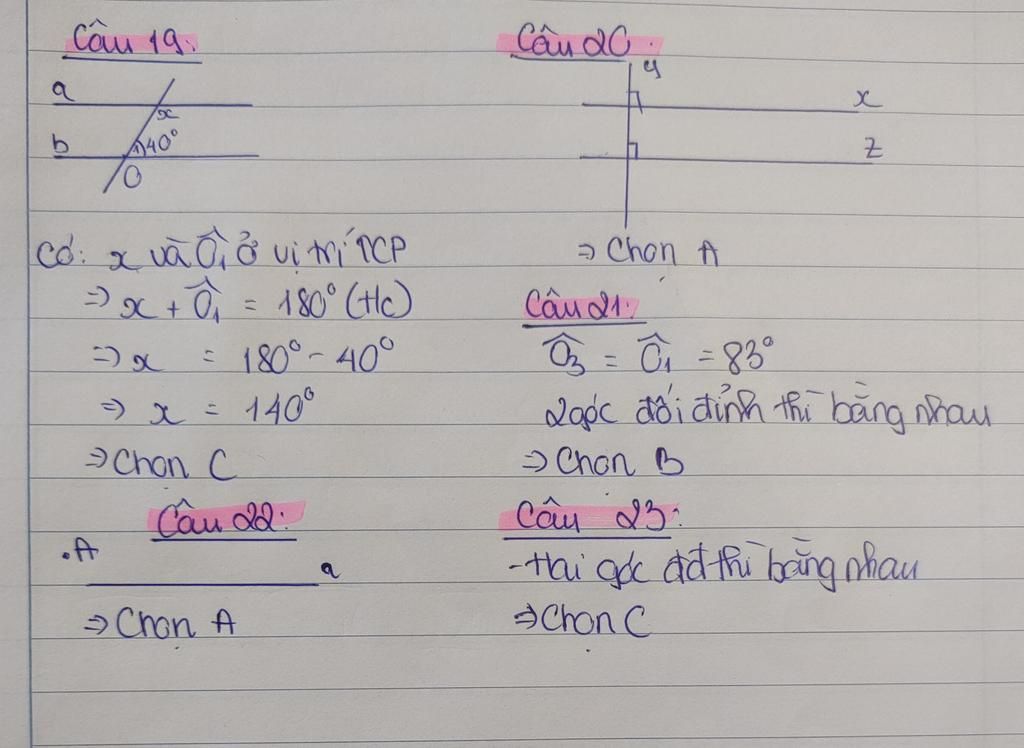 Câu 19:
a
x
b
1
40°
O
Có: x và Ô₁ ở vị trí TCP
=> x + Ô₁ = 180° (t/c)
=> x = 180° - 40°
=> x = 140°
=> Chọn C
Câu 20:
y
x
z
=> Chọn A
Câu 21:
Ô₃ = Ô₁ = 83°
2 góc đối đỉnh thì bằng nhau
=> Chọn B
Câu 22:
.A
a
=> Chọn A
Câu 23:
- Hai góc đđ thì bằng nhau
=> Chọn C